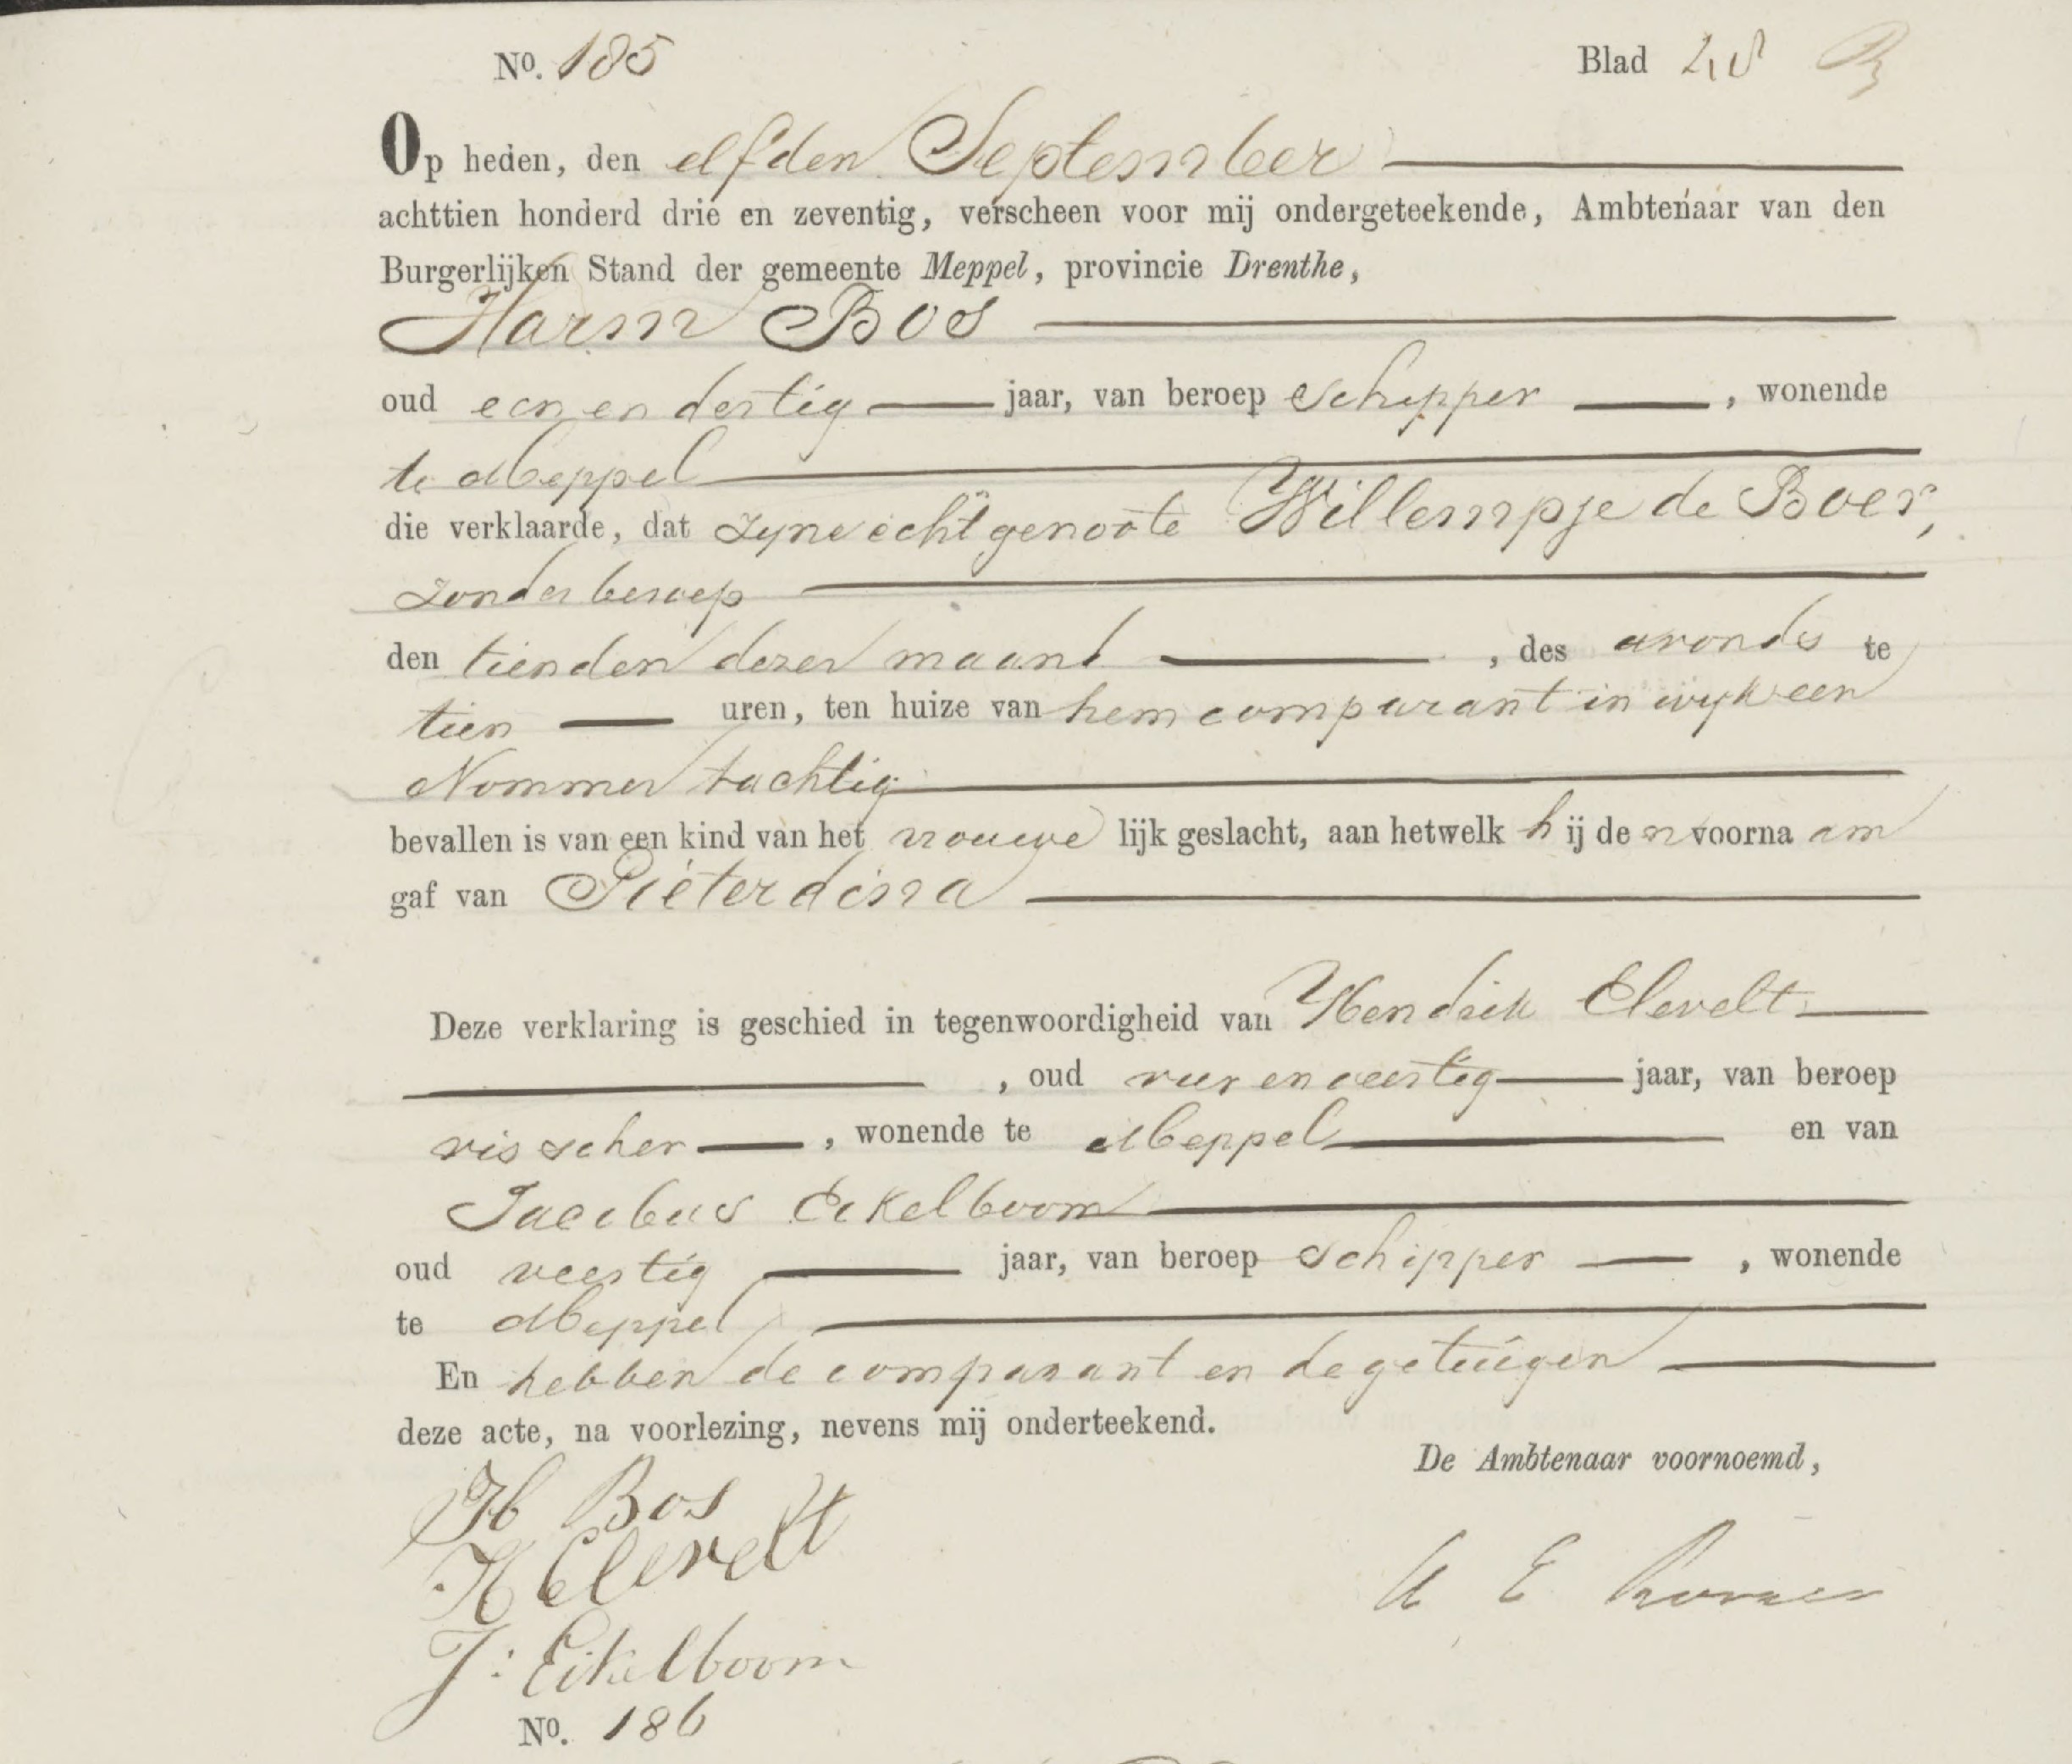 No. 185 Blad 48
Op heden, den elfden September
achttien honderd drie en zeventig, verscheen voor mij ondergeteekende, Ambtenaar van den
Burgerlijken Stand der gemeente Meppel, provincie Drenthe,
Harm Bos
oud een en dertig jaar, van beroep schipper, wonende
te Meppel
die verklaarde, dat zyne echtgenoote Willempje de Boer,
zonder beroep
den tienden dezer maand, des avonds te
tien uren, ten huize van hem comparant in wyk een
Nommer tachtig
bevallen is van een kind van het vrouwelijk geslacht, aan hetwelk hij den voornaam
gaf van Pieterdina
Deze verklaring is geschied in tegenwoordigheid van Hendrik Clevelt
, oud vier en veertig jaar, van beroep
visscher, wonende te Meppel en van
Jacobus Eikelboom
oud veertig jaar, van beroep schipper, wonende
te Meppel
En hebben de comparant en de getuigen
deze acte, na voorlezing, nevens mij onderteekend.
De Ambtenaar voornoemd,
H Bos
H Clevelt
J: Eikelboom
No. 186